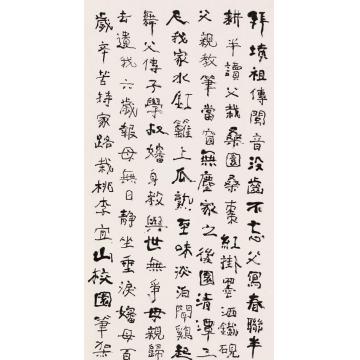 拜墳祖傳閩音没齒不忘父寫春聯半
耕半讀父栽桑園桑棗紅掛墨洒鐵硯
父親教筆當窗無塵家之後園清潭三
尺我家水缸籬上瓜熟至味淡泊聞鷄起
舞父傳子學叔嬸身教與世無爭母親歸
去遺我六歲報母無日静坐垂淚嬸母百
歲辛苦持家路栽桃李宜山校園筆架